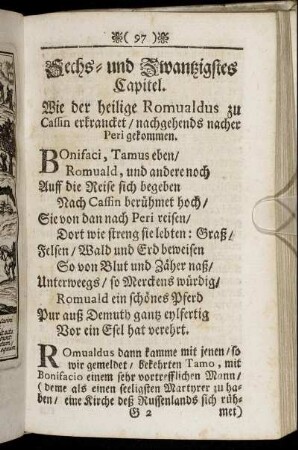 ( 97 )
Sechs- und Zwantzigstes
Capitel.
Wie der heilige Romualdus zu
Cassin erkrancket / nachgehends nacher
Peri gekommen.
BOnifaci, Tamus eben /
Romuald, und andere noch
Auff die Reise sich begeben
Nach Cassin berühmet hoch /
Sie von dan nach Peri reisen /
Dort wie streng sie lebten: Graß /
Felsen / Wald und Erd beweisen
So von Blut und Zäher naß /
Unterweegs / so Merckens würdig /
Romuald ein schönes Pferd
Pur auß Demuth gantz eylfertig
Vor ein Esel hat verehrt.
ROmualdus dann kamme mit jenen / so
wir gemeldet / bekehrten Tamo, mit
Bonifacio einem sehr vortrefflichen Mann /
(deme als einen seeligsten Martyrer zu ha-
ben / eine Kirche deß Russenlands sich rüh-
G 2 met)